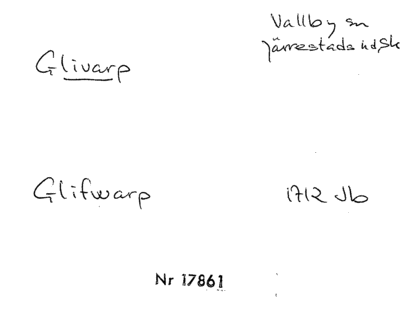 Vallby sn
Järrestads hd, Sk
Glivarp
Glifwarp
1712 Jb
Nr 17861